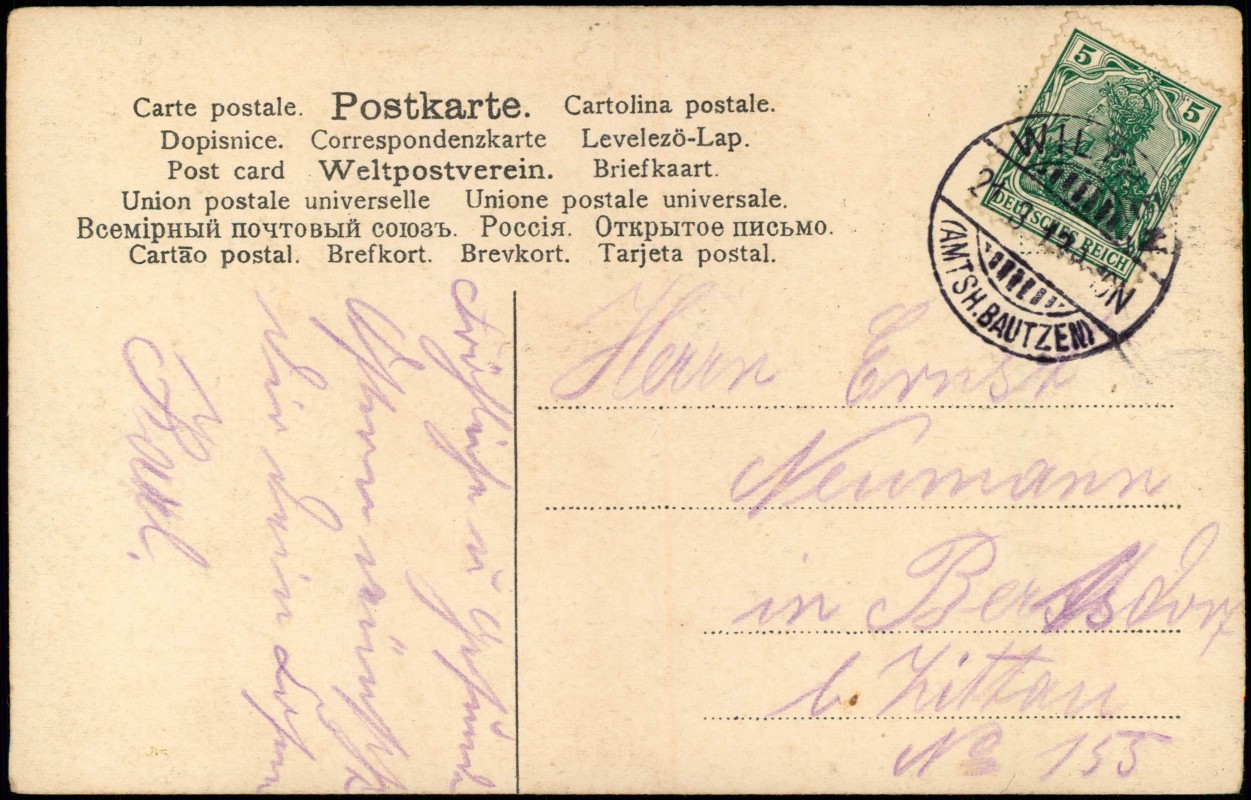 Carte postale. Postkarte. Cartolina postale.
Dopisnice. Correspondenzkarte Levelezö-Lap.
Post card Weltpostverein. Briefkaart.
Union postale universelle Unione postale universale.
Всемірный почтовый союзъ. Россія. Открытое письмо.
Cartāo postal. Brefkort. Brevkort. Tarjeta postal.
5 5
DEUTSCHES REICH
WIL
(AMTSH. BAUTZEN)
Herrn Ernst
Neumann
in
b. Zittau
No 155
Dir Dein
Paul.